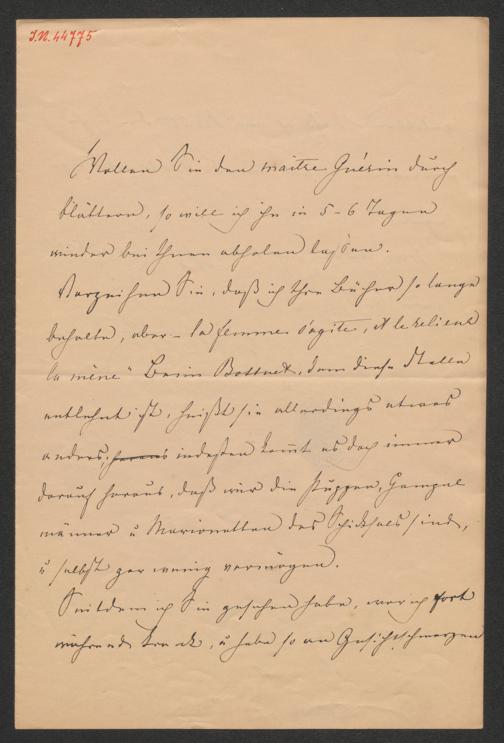 J.N. 44775
Wollen Sie den maitre Guérin durch
blättern, so will ich ihn in 5-6 Tagen
wieder bei Ihnen abholen lassen.
Verzeihen Sie, daß ich Ihre Bücher so lange
behalte, aber – la femme s'agite, et le
la mène" Bei, dem diese Stelle
entlehnt ist, heißt sie allerdings etwas
anders, indessen kom̄t es doch immer
darauf heraus, daß wir die Puppen, Hampel
männer u Marionetten des Schicksals sind,
u selbst gar wenig vermögen.
Seitdem ich Sie gesehen habe, war ich fort
während krank, u habe so an Gesichtschmerzen